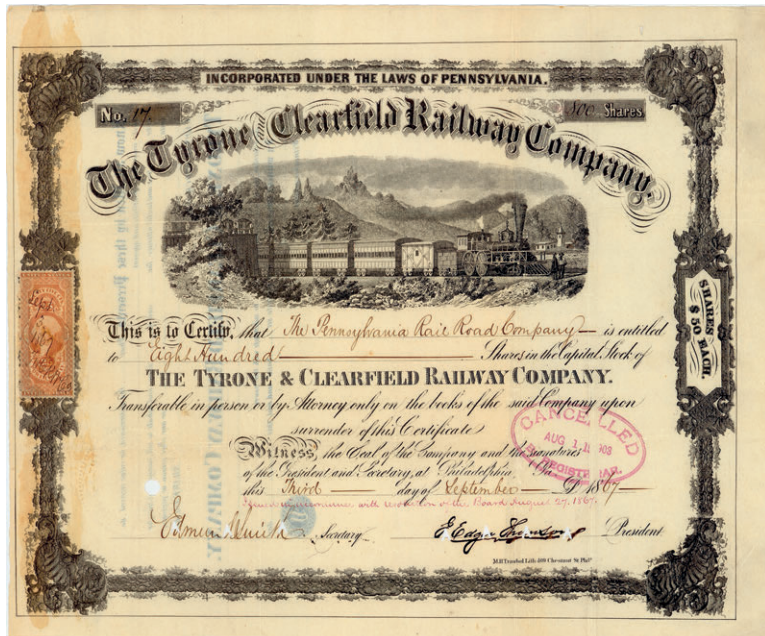 INCORPORATED UNDER THE LAWS OF PENNSYLVANIA.
No. 17. 800 Shares
The Tyrone and Clearfield Railway Company.
SHARES $50 EACH.
This is to Certify, that The Pennsylvania Rail Road Company is entitled
to Eight Hundred Shares in the Capital Stock of
THE TYRONE & CLEARFIELD RAILWAY COMPANY.
Transferable in person or by Attorney only on the books of the said Company upon
surrender of this Certificate
CANCELLED
AUG 1
Witness, the Seal of the Company and the signatures
of the President and Secretary, at Philadelphia, Pa
this Third day of September A.D. 1867
Issued in accordance with resolution of the Board August 27, 1867.
Edmund Smith Secretary. J. Edgar Thomson President
M.H. Traubel Lith. 409 Chesnut St. Phila.
Sept